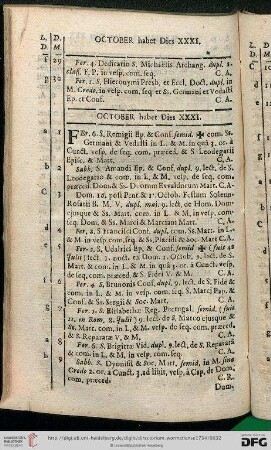 OCTOBER habet Dies XXXI.
L. D.
D. M.
f 29 Fer. 4. Dedicatio S. Michaëlis Archang. dupl. 2.
clas. I. P. in vesp. com. seq. C. A.
g 30 Fer. 5. S. Hieronymi Presb. et Eccl. Doct. dupl. in
M. Credo, in vesp. com. seq. et Ss. Germani et Vedasti
Ep. et Conf. C. A.
OCTOBER habet Dies XXXI.
a 1 FEr. 6. S. Remigii Ep. & Conf. semid. ✠ com. Ss.
Germani & Vedasti in L. & M. in quâ 3. or. A
Cunct. vesp. de seq. com. præced. & S. Leodegarii
Episc. & Mart. C. A.
Sabb. S. Amandi Ep. & Conf. dupl. 9. lect. de S.
Leodegario & com. in L. & M. vesp. de seq. com.
præced. Dom. & Ss. Duorum Evvaldorum Mart. C. A.
Dom. 19. post Pent & 1. Octob. Festum Solenn.
Rosarii B. M. V. dupl. maj. 9. lect. et com. Dom.
ejusque & Ss. Mart. com. in L. & M. in vesp. com.
seq. Dom. & Ss. Marci & Marciani Mart. C. A.
Fer. 2. S. Francisci Conf. dupl. com. Ss. Mart. in L.
& M. in vesp. com. seq. & Ss. Placidi & Soc. Mart. C. A.
Fer. 3. S. Udalrici Ep. & Conf. semid. ✠ ( fuit 4.
Julii ) lect. 1. noct. ex Dom. 1. Octob. 9. lect. de Ss.
Mart. & com. in L. & M. in quâ 3. or. à Cunct. vesp.
de seq. com. præced. & S. Fidei V. & M. C. A.
Fer. 4. S. Brunonis Conf. dupl. 9. lect. de S. Fide &
com. in L. & M. in vesp. com. seq. S. Marci Pap. &
Conf. & Ss. Sergii & Soc. Mart. C. A.
Ss. Mart. com. in L. & M. vesp. de seq. com. præced.
& S. Reparatæ V. & M. C. A.
Fer. 6. S. Brigittæ Vid. dupl. 9. lect. de S. Reparatâ
& com. in L. & M. in vesp. com. seq. C. A.
Sabb. S. Dyonisii & Soc. Mart. semid. in M. sine
Credo 2. or. A Cunct. 3. ad libit. vesp. à Cap. de Dom.
com. præced. C. R.
Dom.
http://digi.ub.uni-heidelberg.de/diglit/
© Universitätsbibliothek Heidelberg